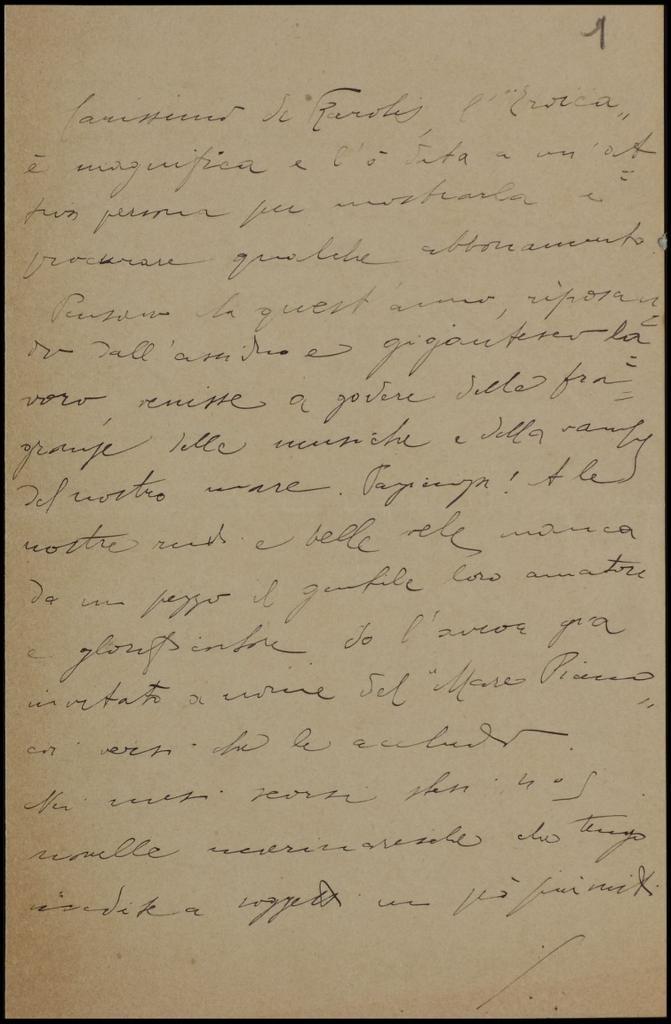 1
Carissimo de Karolis, l'"Eroica„
è magnifica e l'ò data a un'al=
tra persona per mostrarla e
procurare qualche abbonamento.
Pensavo che quest'anno, riposan=
do dall'assiduo e gigantesco la=
voro, venisse a godere della fra=
granze delle musiche e della
del nostro mare. Pazienza! A le
nostre rudi e belle vele manca
da un pezzo il gentile loro amatore
e glorificatore. Io l'aveva già
invitato a nome del "Mare Piceno„
coi versi che le accludo.
Nei mesi scorsi stesi
novelle marinaresche che tengo
inedite a soggetti un pò